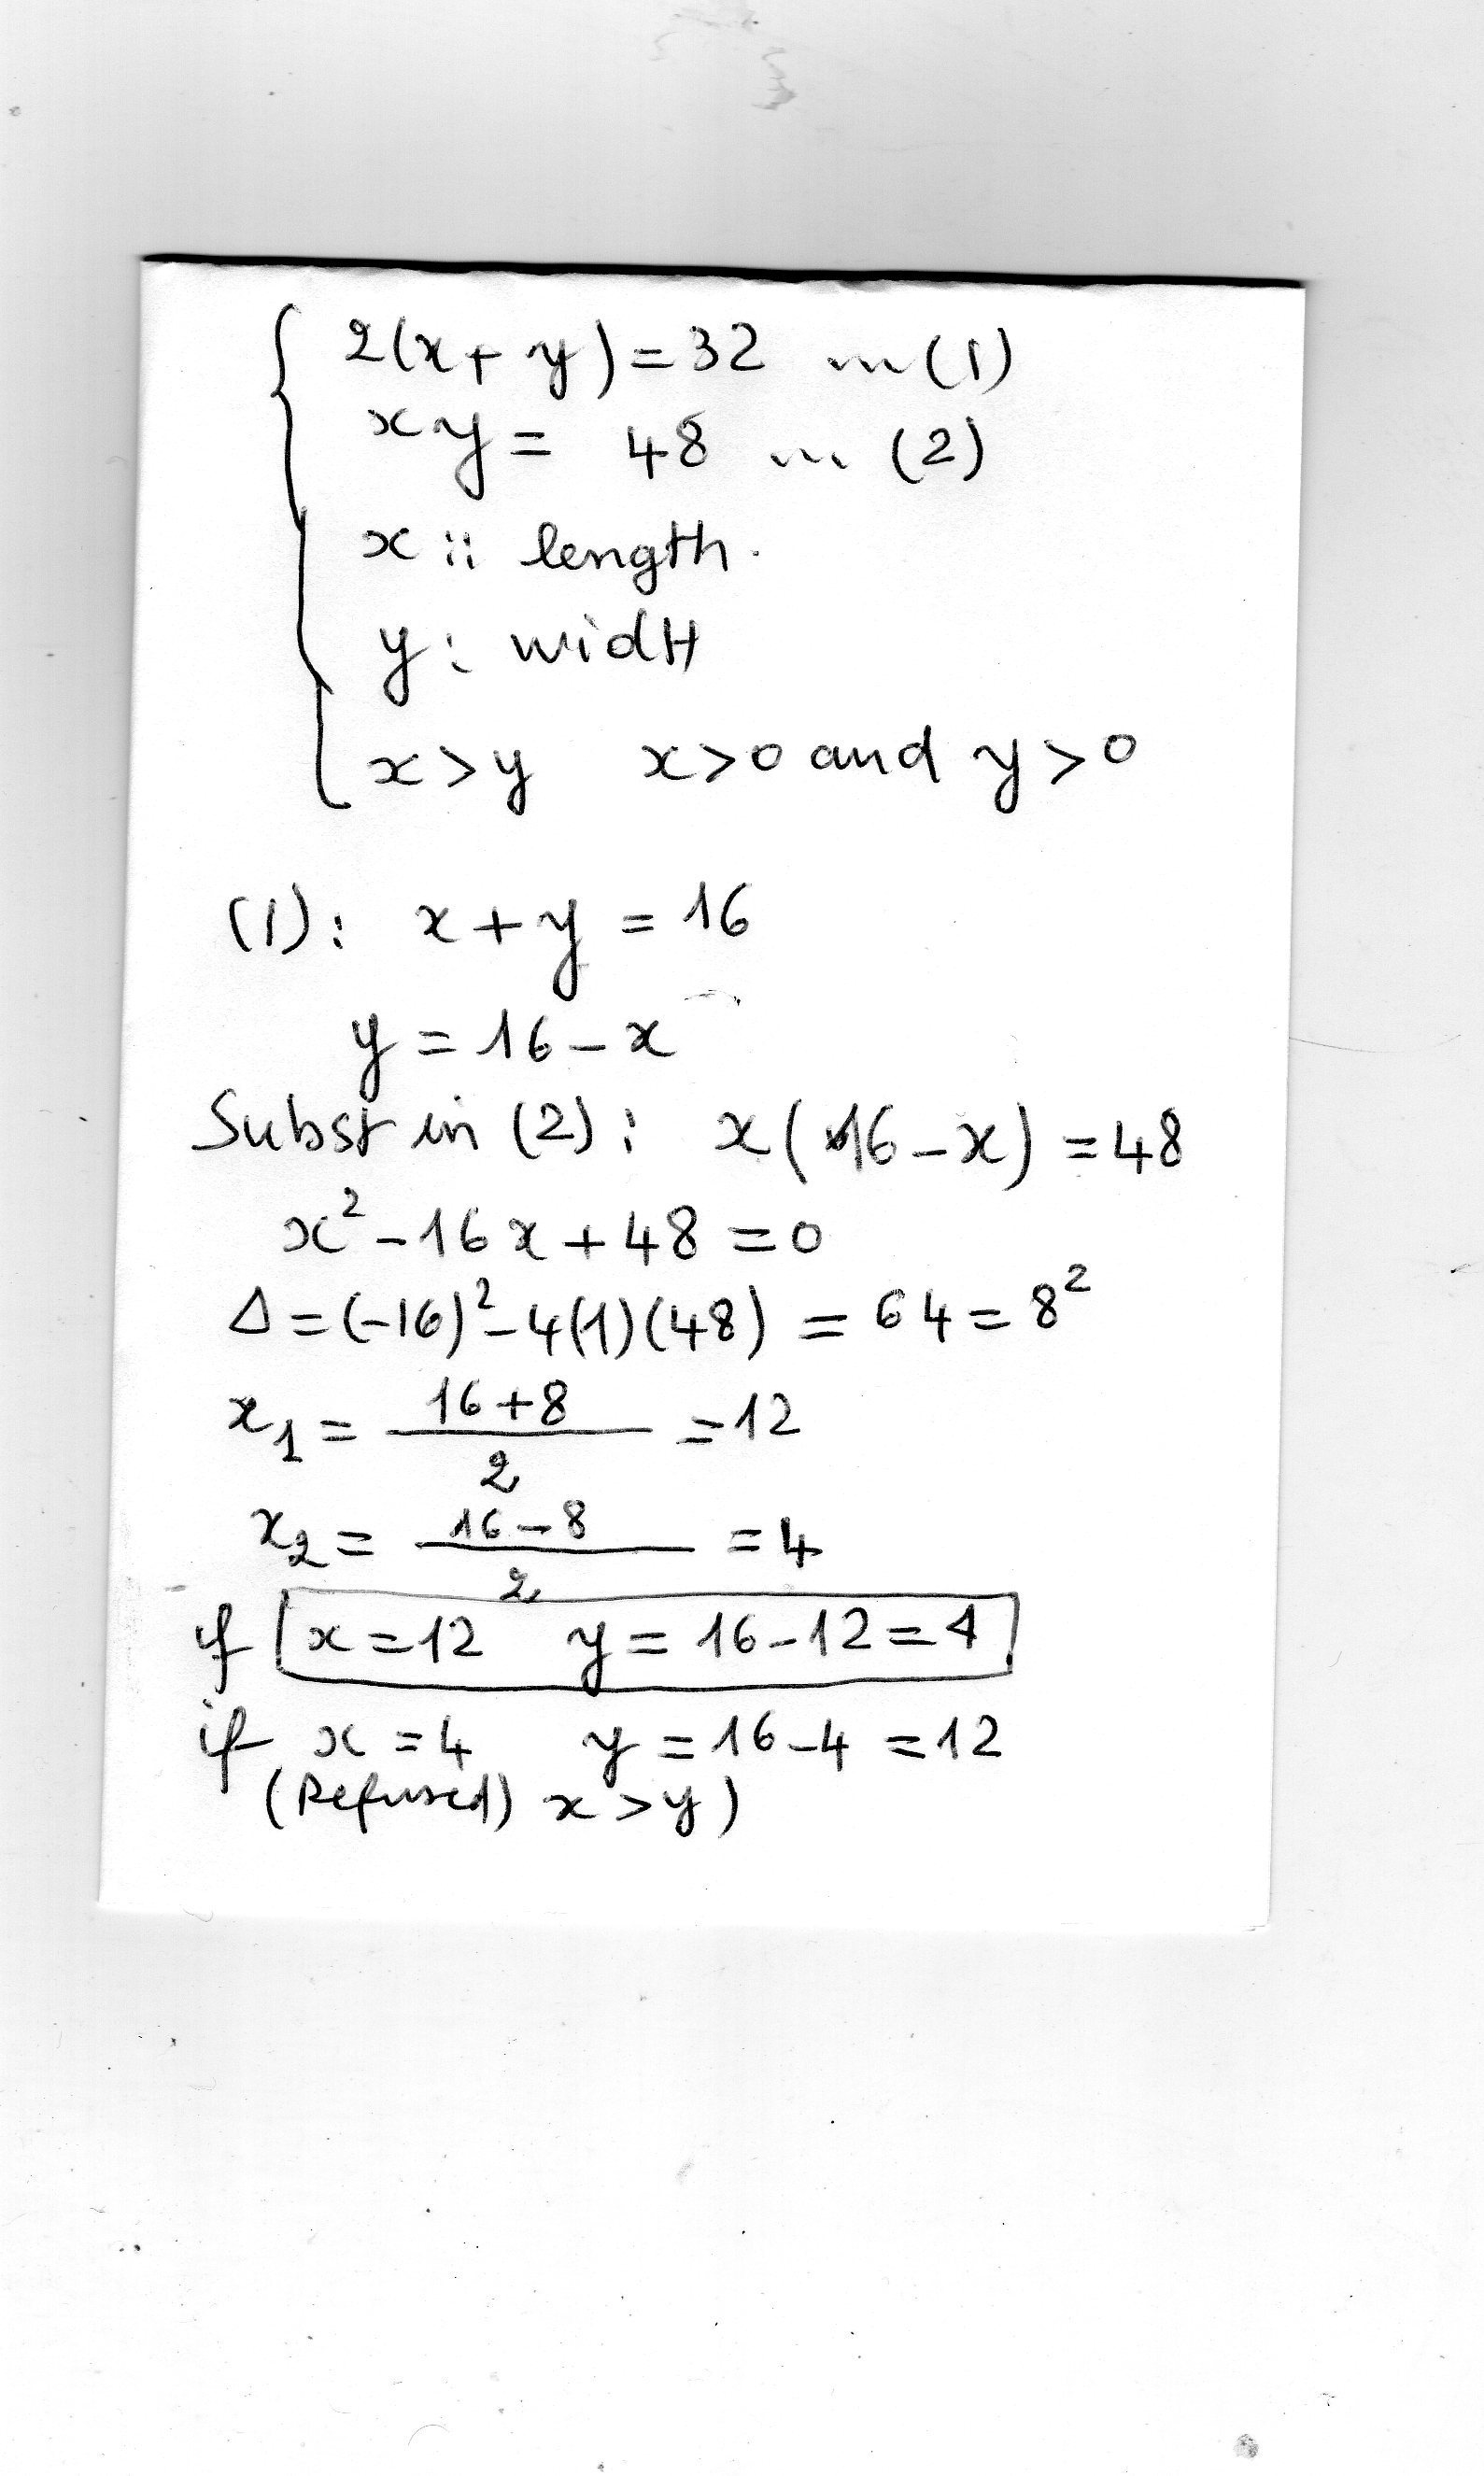 2(x+y)=32 ... (1)
xy= 48 ... (2)
x :: length.
y: widtH
x>y x>0 and y>0
(1): x+y=16
y=16-x
Subst in (2): x(16-x)=48
x²-16x+48=0
Δ=(-16)²-4(1)(48)=64=8²
x₁= 16+8 / 2 =12
x₂= 16-8 / 2 =4
if x=12 y=16-12=4
if x=4 y=16-4=12
(Refused) x>y)